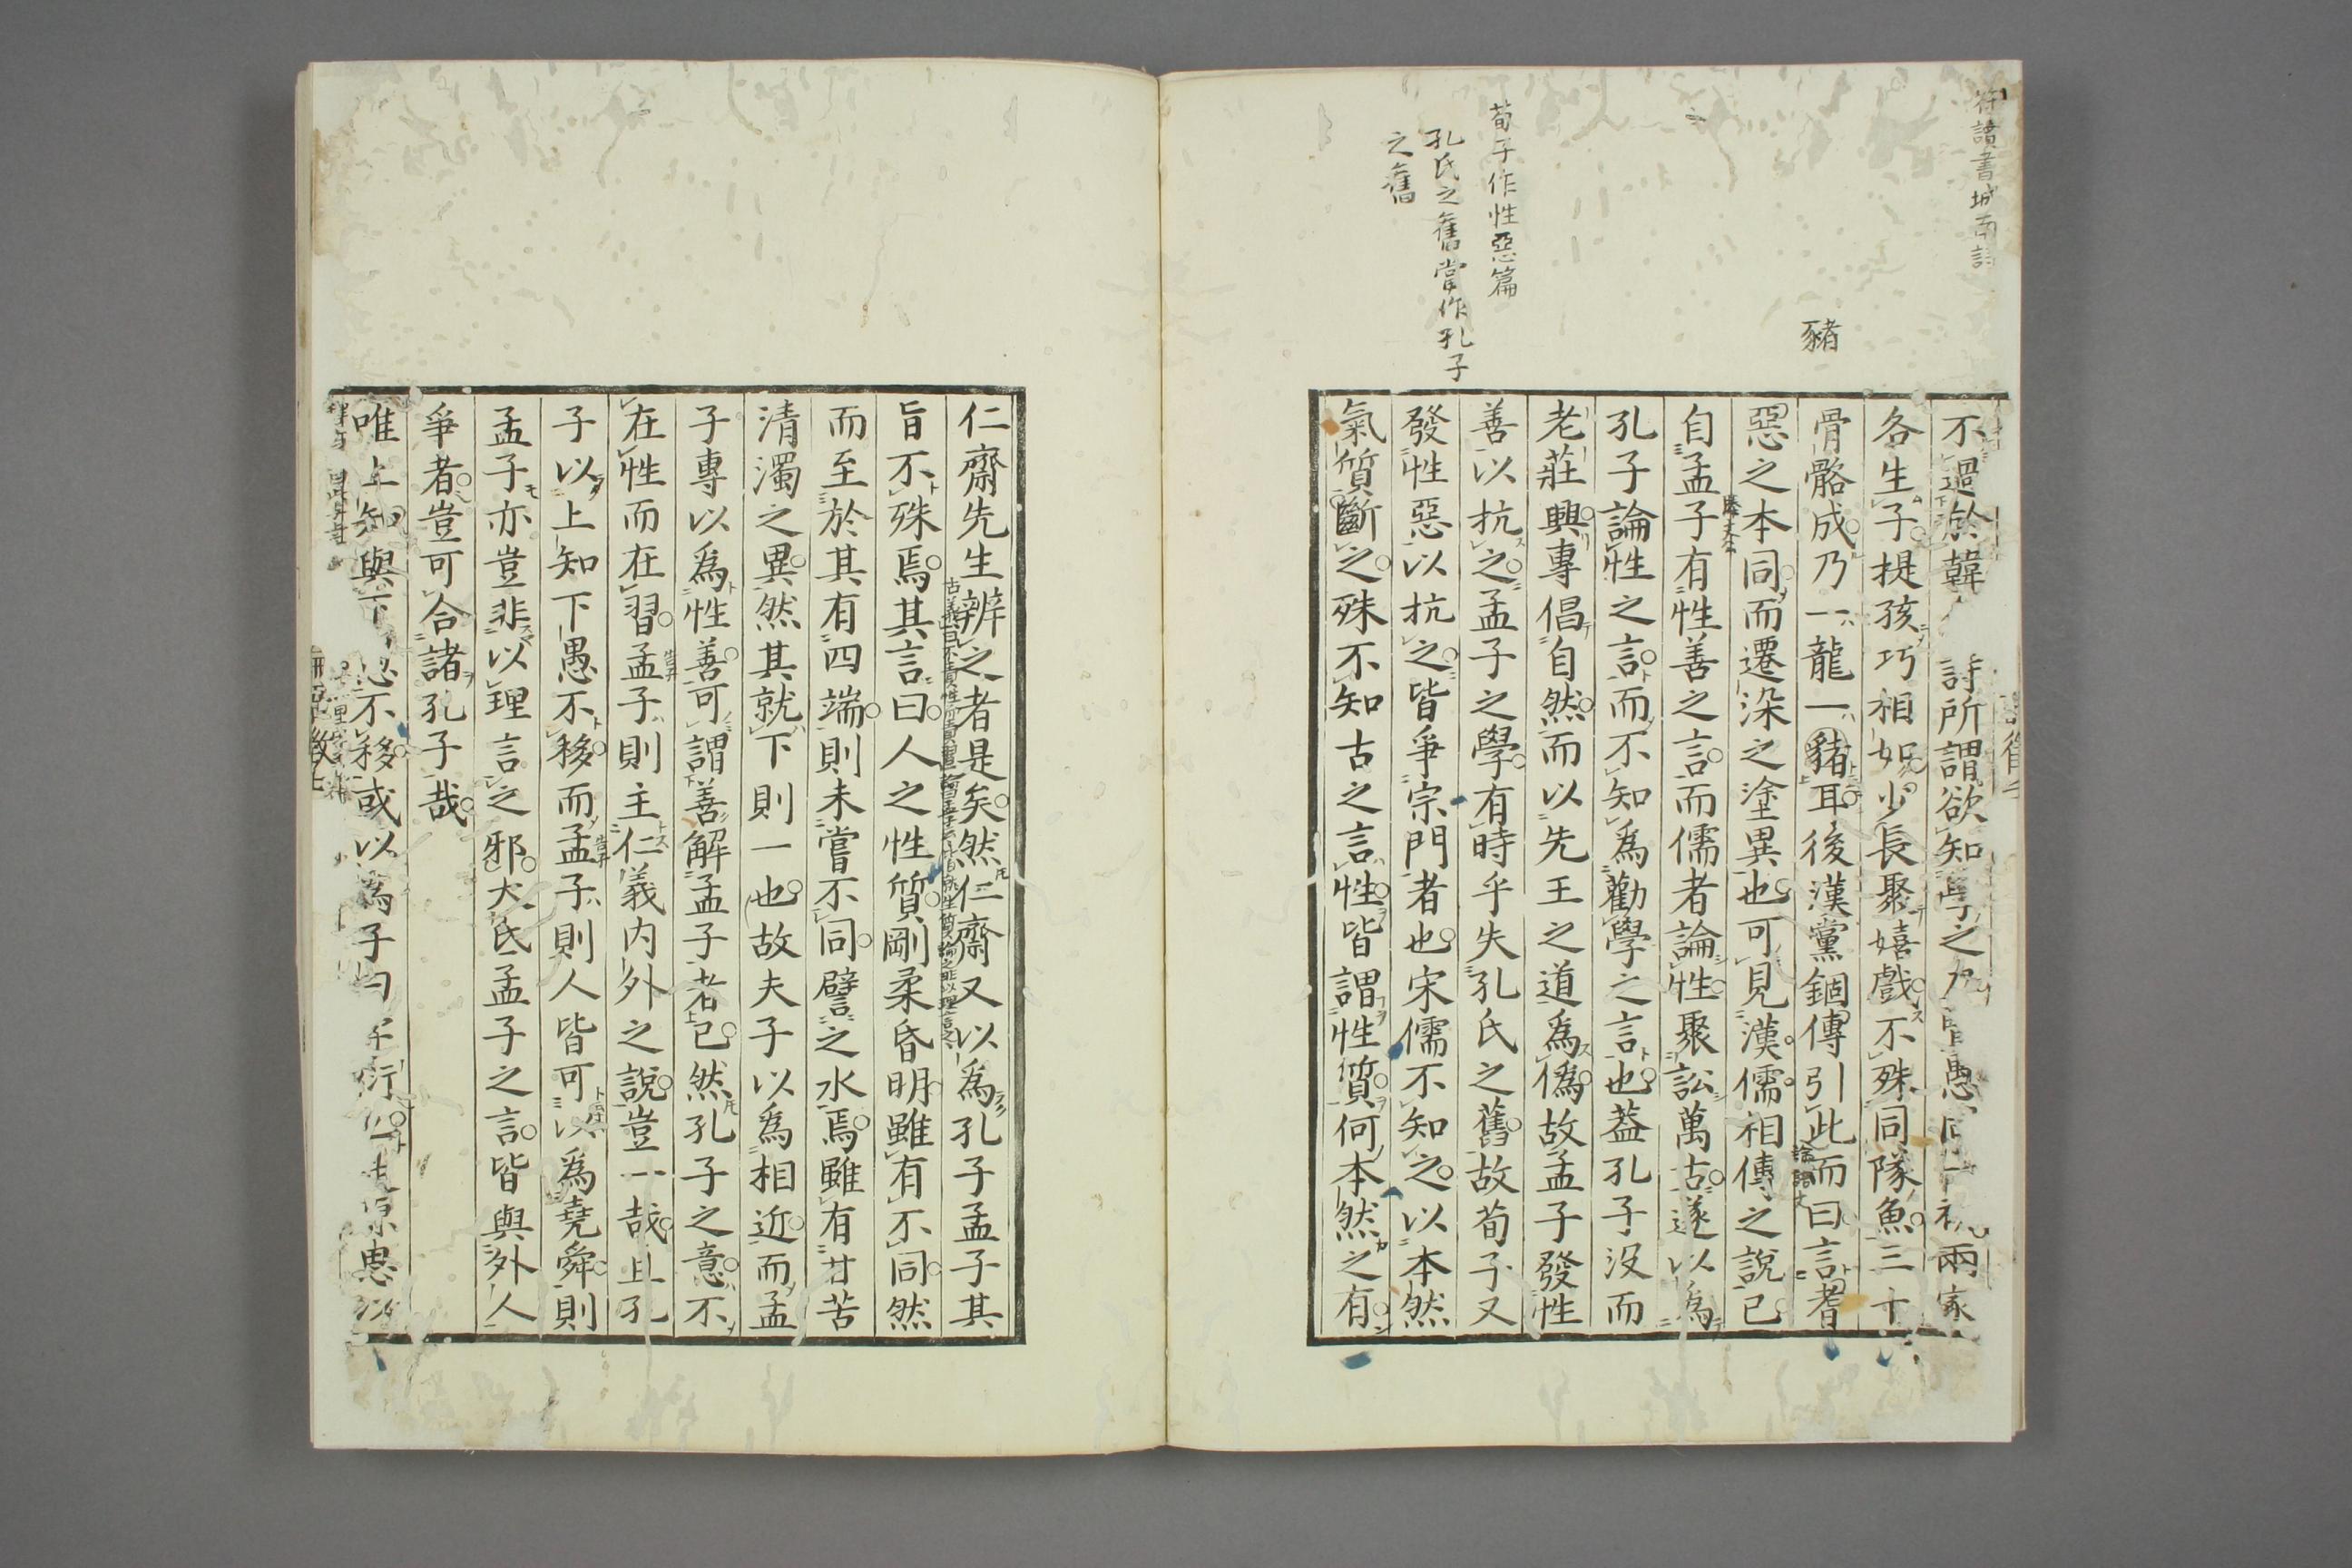 符讀書城南詩
豬
荀子作性惡篇
孔氏之舊當作孔子
之舊
不過於韓 詩所謂欲知學之 賢愚同 初兩家
各生子提孩巧相如少長聚嬉戲不殊同隊魚三十
骨骼成乃一龍一豬耳後漢黨錮傳引此而曰言耆
惡之本同而遷染之塗異也可見漢儒相傳之說已
自孟子有性善之言而儒者論性聚訟萬古遂以為
孔子論性之言而不知為勸學之言也蓋孔子沒而
老莊興專倡自然而以先王之道為偽故孟子發性
善以抗之孟子之學有時乎失孔氏之舊故荀子又
發性惡以抗之皆爭宗門者也宋儒不知之以本然
氣質斷之殊不知古之言性皆謂性質何本然之有
仁齋先生辨之者是矣然仁齋又以為孔子孟子其
旨不殊焉其言曰人之性質剛柔昏明雖有不同然
而至於其有四端則未嘗不同譬之水焉雖有甘苦
清濁之異然其就下則一也故夫子以為相近而孟
子專以為性善可謂善解孟子者已然孔子之意不
在性而在習孟子則主仁義內外之說豈一哉且孔
子以上知下愚不移而孟子則人皆可以為堯舜則
孟子亦豈非以理言之邪大氐孟子之言皆與外人
爭者豈可合諸孔子哉
唯上知與下 不移或以為子曰 衍 原思